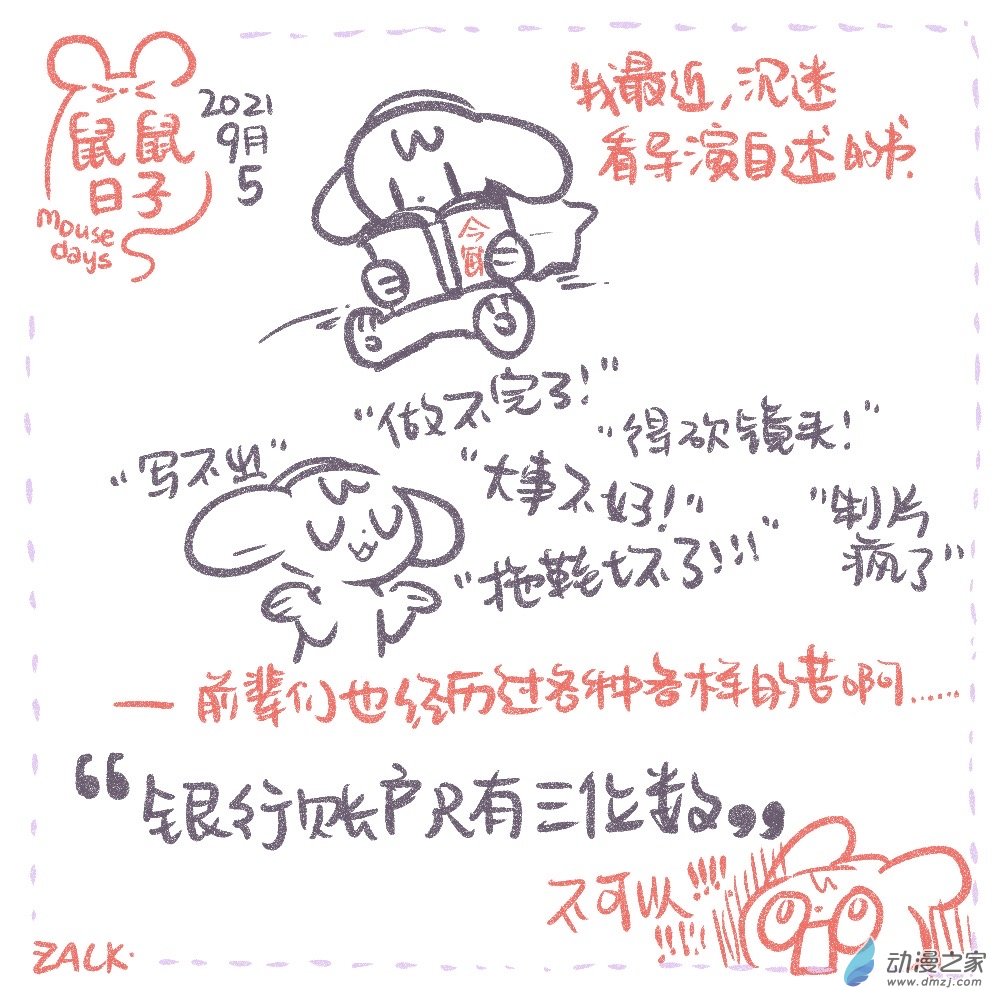 鼠鼠
日子
mouse
days
2021
9月
5
我最近,沉迷
看导演自述的书.
今敏
"做不完了!"
"得砍镜头!"
"写不出"
"大事不好!"
"制片
疯了"
"拖鞋坏了!!!"
— 前辈们也经历过各种各样的苦啊……
“银行账户只有三位数”
不可以!!!
!!!!
ZALK.
动漫之家
www.dmzj.com